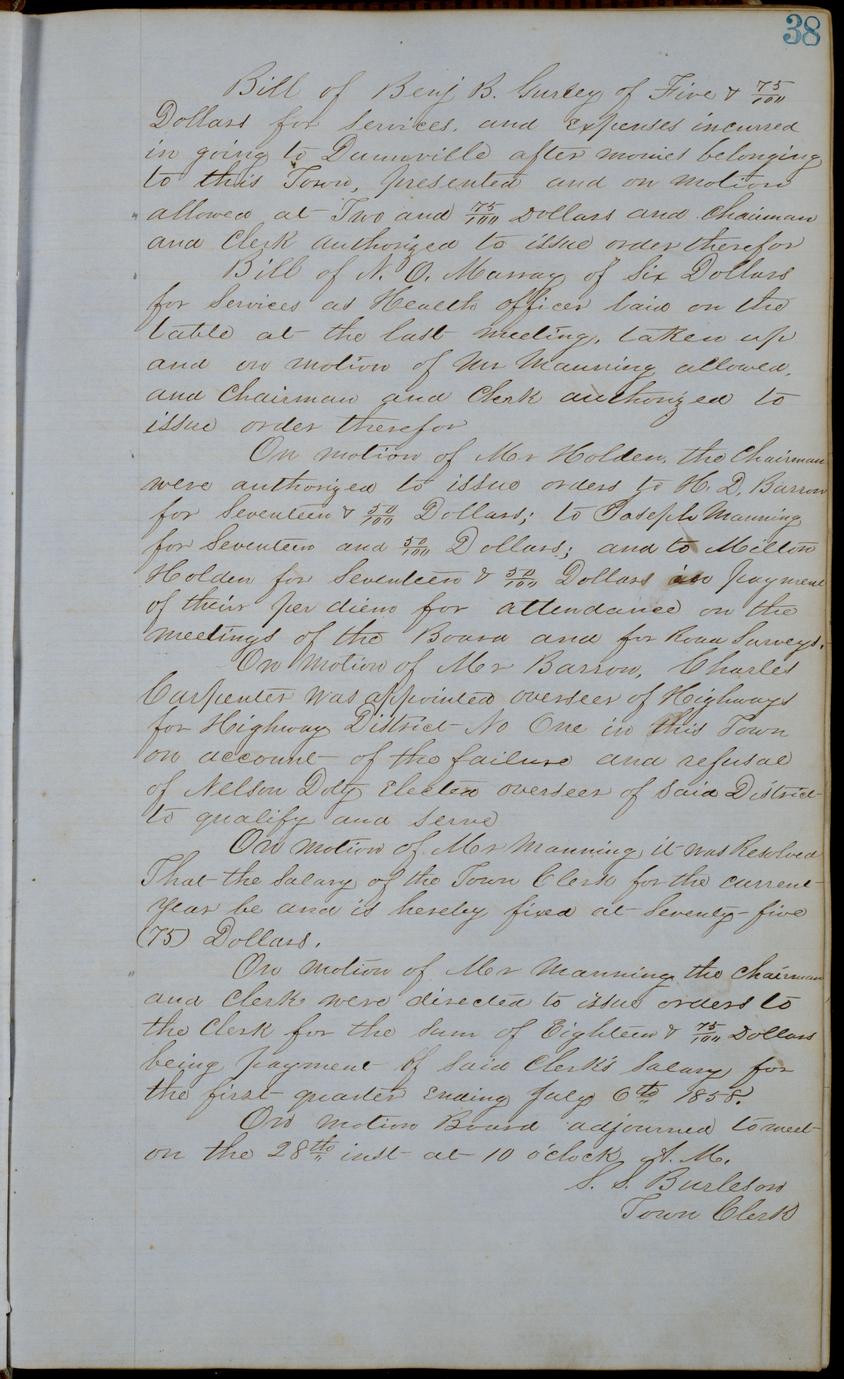 38
Bill of Benj B. Gurley of Five & 75/100
Dollars for services. and Expenses incurred
in going to Dunnville after monies belonging
to this Town, presented and on motion
allowed at Two and 75/100 Dollars and Chairman
and Clerk authorized to issue order therefor
Bill of N. O. Murray of Six Dollars
for Services as Health officer laid on the
table at the last meeting, taken up
and on motion of Mr Manning allowed,
and Chairman and Clerk authorized to
issue order therefor
On motion of Mr Holden, the Chairman
were authorized to issue orders to H. D. Barron
for Seventeen & 50/100 Dollars; to Joseph Manning
for Seventeen and 50/100 Dollars; and to Milton
Holden for Seventeen & 50/100 Dollars in payment
of their per diem for attendance on the
meetings of the Board and for Road Surveys.
On Motion of Mr Barron, Charles
Carpenter was appointed overseer of Highways
for Highway District No One in this Town
on account of the failure and refusal
of Nelson Doty Elected overseer of said District
to qualify and serve
On motion of Mr Manning it was Resolved
That the Salary of the Town Clerk for the current
year be and is hereby fixed at Seventy-five
(75) Dollars.
On motion of Mr Manning the Chairman
and Clerk were directed to issue orders to
the Clerk for the sum of Eighteen & 75/100 Dollars
being payment of said Clerk's Salary for
the first quarter Ending July 6th 1858.
On motion Board adjourned to meet
on the 28th inst at 10 o'clock A. M.
S. S. Burleson
Town Clerk